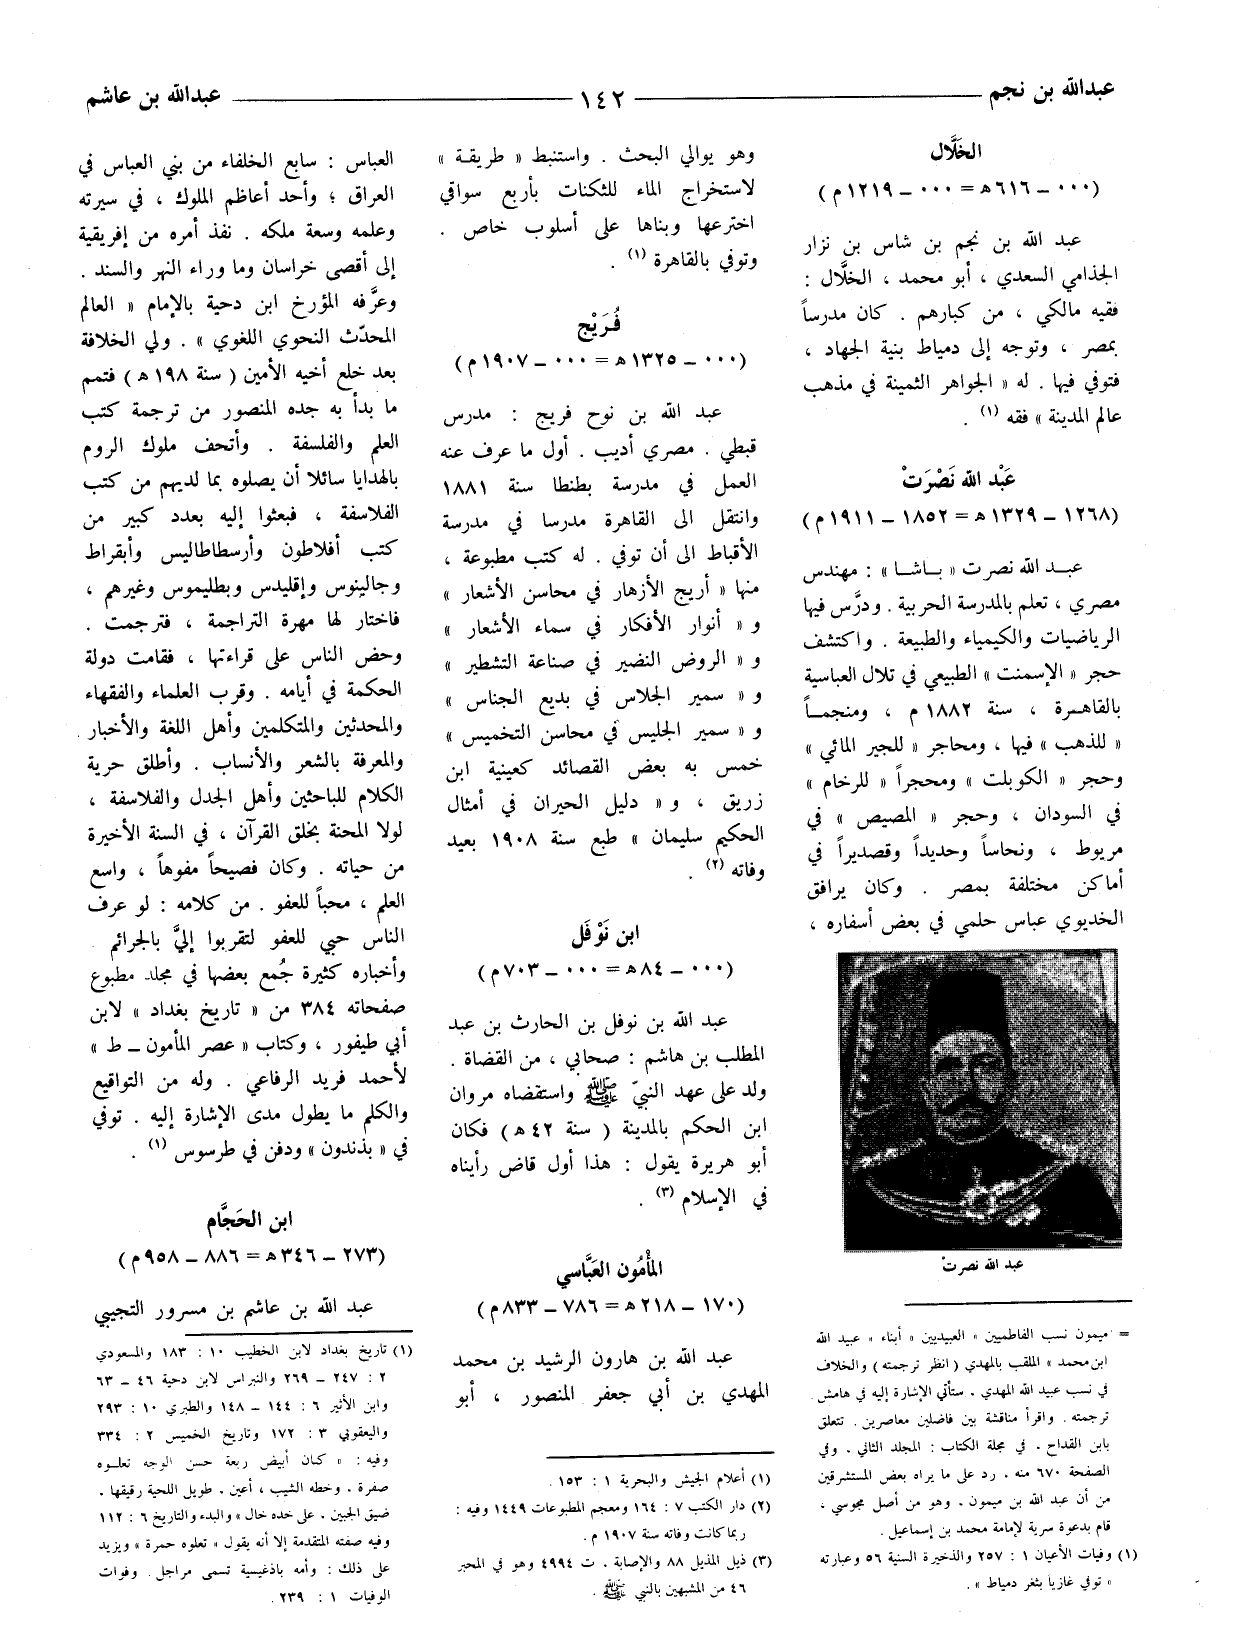 عبدالله بن نجم ــــ ١٤٢ ــــ عبدالله بن عاشم
الخَلَّال
(٠٠٠ ــ ٦١٦ ه‍ = ٠٠٠ ــ ١٢١٩ م)
عبد الله بن نجم بن شاس بن نزار
الجذامي السعدي ، أبو محمد ، الخلَّال :
فقيه مالكي ، من كبارهم . كان مدرساً
بمصر ، وتوجه إلى دمياط بنية الجهاد ،
فتوفي فيها . له « الجواهر الثمينة في مذهب
عالم المدينة » فقه (١) .
عَبْد الله نَصْرَتْ
(١٢٦٨ ــ ١٣٢٩ ه‍ = ١٨٥٢ ــ ١٩١١ م)
عبد الله نصرت « باشا » : مهندس
مصري ، تعلم بالمدرسة الحربية . ودرَّس فيها
الرياضيات والكيمياء والطبيعة . واكتشف
حجر « الإسمنت » الطبيعي في تلال العباسية
بالقاهرة ، سنة ١٨٨٢ م ، ومنجماً
« للذهب » فيها ، ومحاجر « للجير المائي »
وحجر « الكوبلت » ومحجراً « للرخام »
في السودان ، وحجر « المصيص » في
مريوط ، ونحاساً وحديداً وقصديراً في
أماكن مختلفة بمصر . وكان يرافق
الخديوي عباس حلمي في بعض أسفاره ،
عبد الله نصرتْ
= ميمون نسب الفاطميين « العبيديين » أبناء « عبيد الله
ابن محمد » الملقب بالمهدي ( انظر ترجمته ) والخلاف
في نسب عبيد الله المهدي . ستأتي الإشارة إليه في هامش
ترجمته . واقرأ مناقشة بين فاضلين معاصرين . تتعلق
بابن القداح . في مجلة الكتاب : المجلد الثاني . وفي
الصفحة ٦٧٠ منه . رد على ما يراه بعض المستشرقين
من أن عبد الله بن ميمون . وهو من أصل مجوسي ،
قام بدعوة سرية لإمامة محمد بن إسماعيل .
(١) وفيات الأعيان ١ : ٢٥٧ والذخيرة السنية ٥٦ وعبارته
« توفي غازيا بثغر دمياط » .
وهو يوالي البحث . واستنبط « طريقة »
لاستخراج الماء للثكنات بأربع سواقي
اخترعها وبناها على أسلوب خاص .
وتوفي بالقاهرة (١) .
فُرَيْج
(٠٠٠ ــ ١٣٢٥ ه‍ = ٠٠٠ ــ ١٩٠٧ م)
عبد الله بن نوح فريج : مدرس
قبطي . مصري أديب . أول ما عرف عنه
العمل في مدرسة بطنطا سنة ١٨٨١
وانتقل الى القاهرة مدرسا في مدرسة
الأقباط الى أن توفي . له كتب مطبوعة ،
منها « أريج الأزهار في محاسن الأشعار »
و « أنوار الأفكار في سماء الأشعار »
و « الروض النضير في صناعة التشطير »
و « سمير الجلاس في بديع الجناس »
و « سمير الجليس في محاسن التخميس »
خمس به بعض القصائد كعينية ابن
زريق ، و « دليل الحيران في أمثال
الحكيم سليمان » طبع سنة ١٩٠٨ بعيد
وفاته (٢) .
ابن نَوْفَل
(٠٠٠ ــ ٨٤ ه‍ = ٠٠٠ ــ ٧٠٣ م)
عبد الله بن نوفل بن الحارث بن عبد
المطلب بن هاشم : صحابي ، من القضاة .
ولد على عهد النبيّ ﷺ واستقضاه مروان
ابن الحكم بالمدينة ( سنة ٤٢ ه‍ ) فكان
أبو هريرة يقول : هذا أول قاض رأيناه
في الإسلام (٣) .
المأْمُون العَبَّاسي
(١٧٠ ــ ٢١٨ ه‍ = ٧٨٦ ــ ٨٣٣ م)
عبد الله بن هارون الرشيد بن محمد
المهدي بن أبي جعفر المنصور ، أبو
(١) أعلام الجيش والبحرية ١ : ١٥٣ .
(٢) دار الكتب ٧ : ١٦٤ ومعجم المطبوعات ١٤٤٩ وفيه :
ربما كانت وفاته سنة ١٩٠٧ م .
(٣) ذيل المذيل ٨٨ والإصابة . ت ٤٩٩٤ وهو في المحبر
٤٦ من المشبهين بالنبي ﷺ .
العباس : سابع الخلفاء من بني العباس في
العراق ؛ وأحد أعاظم الملوك ، في سيرته
وعلمه وسعة ملكه . نفذ أمره من إفريقية
إلى أقصى خراسان وما وراء النهر والسند .
وعرَّفه المؤرخ ابن دحية بالإمام « العالم
المحدّث النحوي اللغوي » . ولي الخلافة
بعد خلع أخيه الأمين ( سنة ١٩٨ ه‍ ) فتمم
ما بدأ به جده المنصور من ترجمة كتب
العلم والفلسفة . وأتحف ملوك الروم
بالهدايا سائلا أن يصلوه بما لديهم من كتب
الفلاسفة ، فبعثوا إليه بعدد كبير من
كتب أفلاطون وأرسطاطاليس وأبقراط
وجالينوس وإقليدس وبطليموس وغيرهم ،
فاختار لها مهرة التراجمة ، فترجمت .
وحض الناس على قراءتها ، فقامت دولة
الحكمة في أيامه . وقرب العلماء والفقهاء
والمحدثين والمتكلمين وأهل اللغة والأخبار .
والمعرفة بالشعر والأنساب . وأطلق حرية
الكلام للباحثين وأهل الجدل والفلاسفة ،
لولا المحنة بخلق القرآن ، في السنة الأخيرة
من حياته . وكان فصيحاً مفوهاً ، واسع
العلم ، محباً للعفو . من كلامه : لو عرف
الناس حبي للعفو لتقربوا إليَّ بالجرائم .
وأخباره كثيرة جُمع بعضها في مجلد مطبوع
صفحاته ٣٨٤ من « تاريخ بغداد » لابن
أبي طيفور ، وكتاب « عصر المأمون ــ ط »
لأحمد فريد الرفاعي . وله من التواقيع
والكلم ما يطول مدى الإشارة إليه . توفي
في « بذندون » ودفن في طرسوس (١) .
ابن الحَجَّام
(٢٧٣ ــ ٣٤٦ ه‍ = ٨٨٦ ــ ٩٥٨ م)
عبد الله بن عاشم بن مسرور التجيبي
(١) تاريخ بغداد لابن الخطيب ١٠ : ١٨٣ والمسعودي
٢ : ٢٤٧ ــ ٢٦٩ والنبراس لابن دحية ٤٦ ــ ٦٣
وابن الأثير ٦ : ١٤٤ ــ ١٤٨ والطبري ١٠ : ٢٩٣
واليعقوبي ٣ : ١٧٢ وتاريخ الخميس ٢ : ٣٣٤
وفيه : « كان أبيض ربعة حسن الوجه تعلوه
صفرة . وخطه الشيب ، أعين . طويل اللحية رقيقها .
ضيق الجبين . على خده خال » والبدء والتاريخ ٦ : ١١٢
وفيه صفته المتقدمة إلا أنه يقول « تعلوه حمرة » ويزيد
على ذلك : وأمه باذغيسية تسمى مراجل . وفوات
الوفيات ١ : ٢٣٩ .